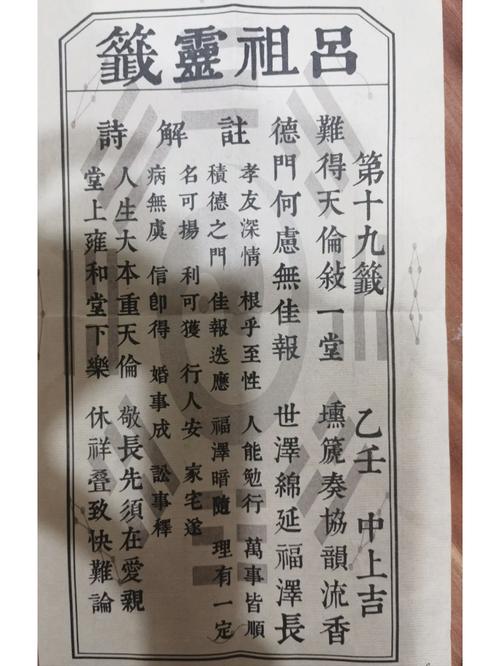 呂祖靈籤
第十九籤 乙壬 中上吉
難得天倫敍一堂 壎篪奏協韻流香
德門何慮無佳報 世澤綿延福澤長
註解詩
孝友深情 根乎至性 人能勉行 萬事皆順
積德之門 佳報迭應 福澤暗隨 理有一定
名可揚 利可獲 行人安 家宅遂
病無虞 信卽得 婚事成 訟事釋
人生大本重天倫 敬長先須在愛親
堂上雍和堂下樂 休祥叠致快難論